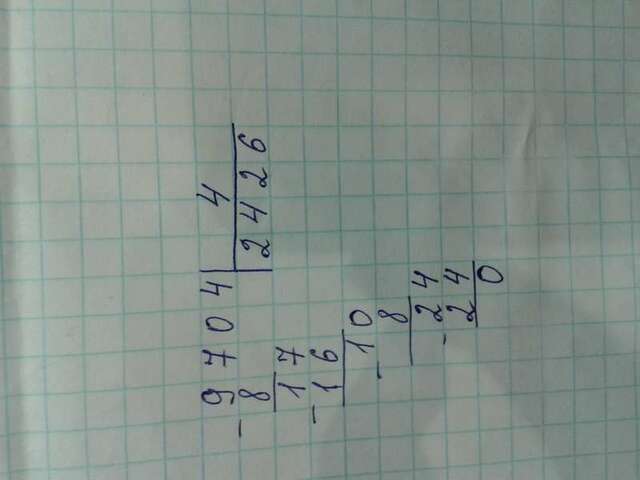 9704 4
- 8 2426
17
- 16
10
- 8
24
- 24
0